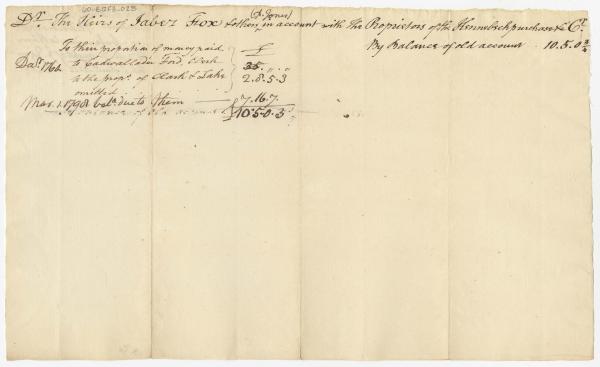 60-BOF3-023
(A. Jones)
Dr. The Heirs of Jabez Fox & others in account with The Proprietors of the Kennebeck purchase &c Cr.
To their proportion of money paid £
Decr. 1764 to Cadwallader Ford, Clerk 35 " "
to the propr. of Clark & Lake 2.8.5.3
omitted
By Balance of old account 10.5.0 3/4
Mar. 1. 1798 bale. due to them 7.16.7
£10.5.0.3